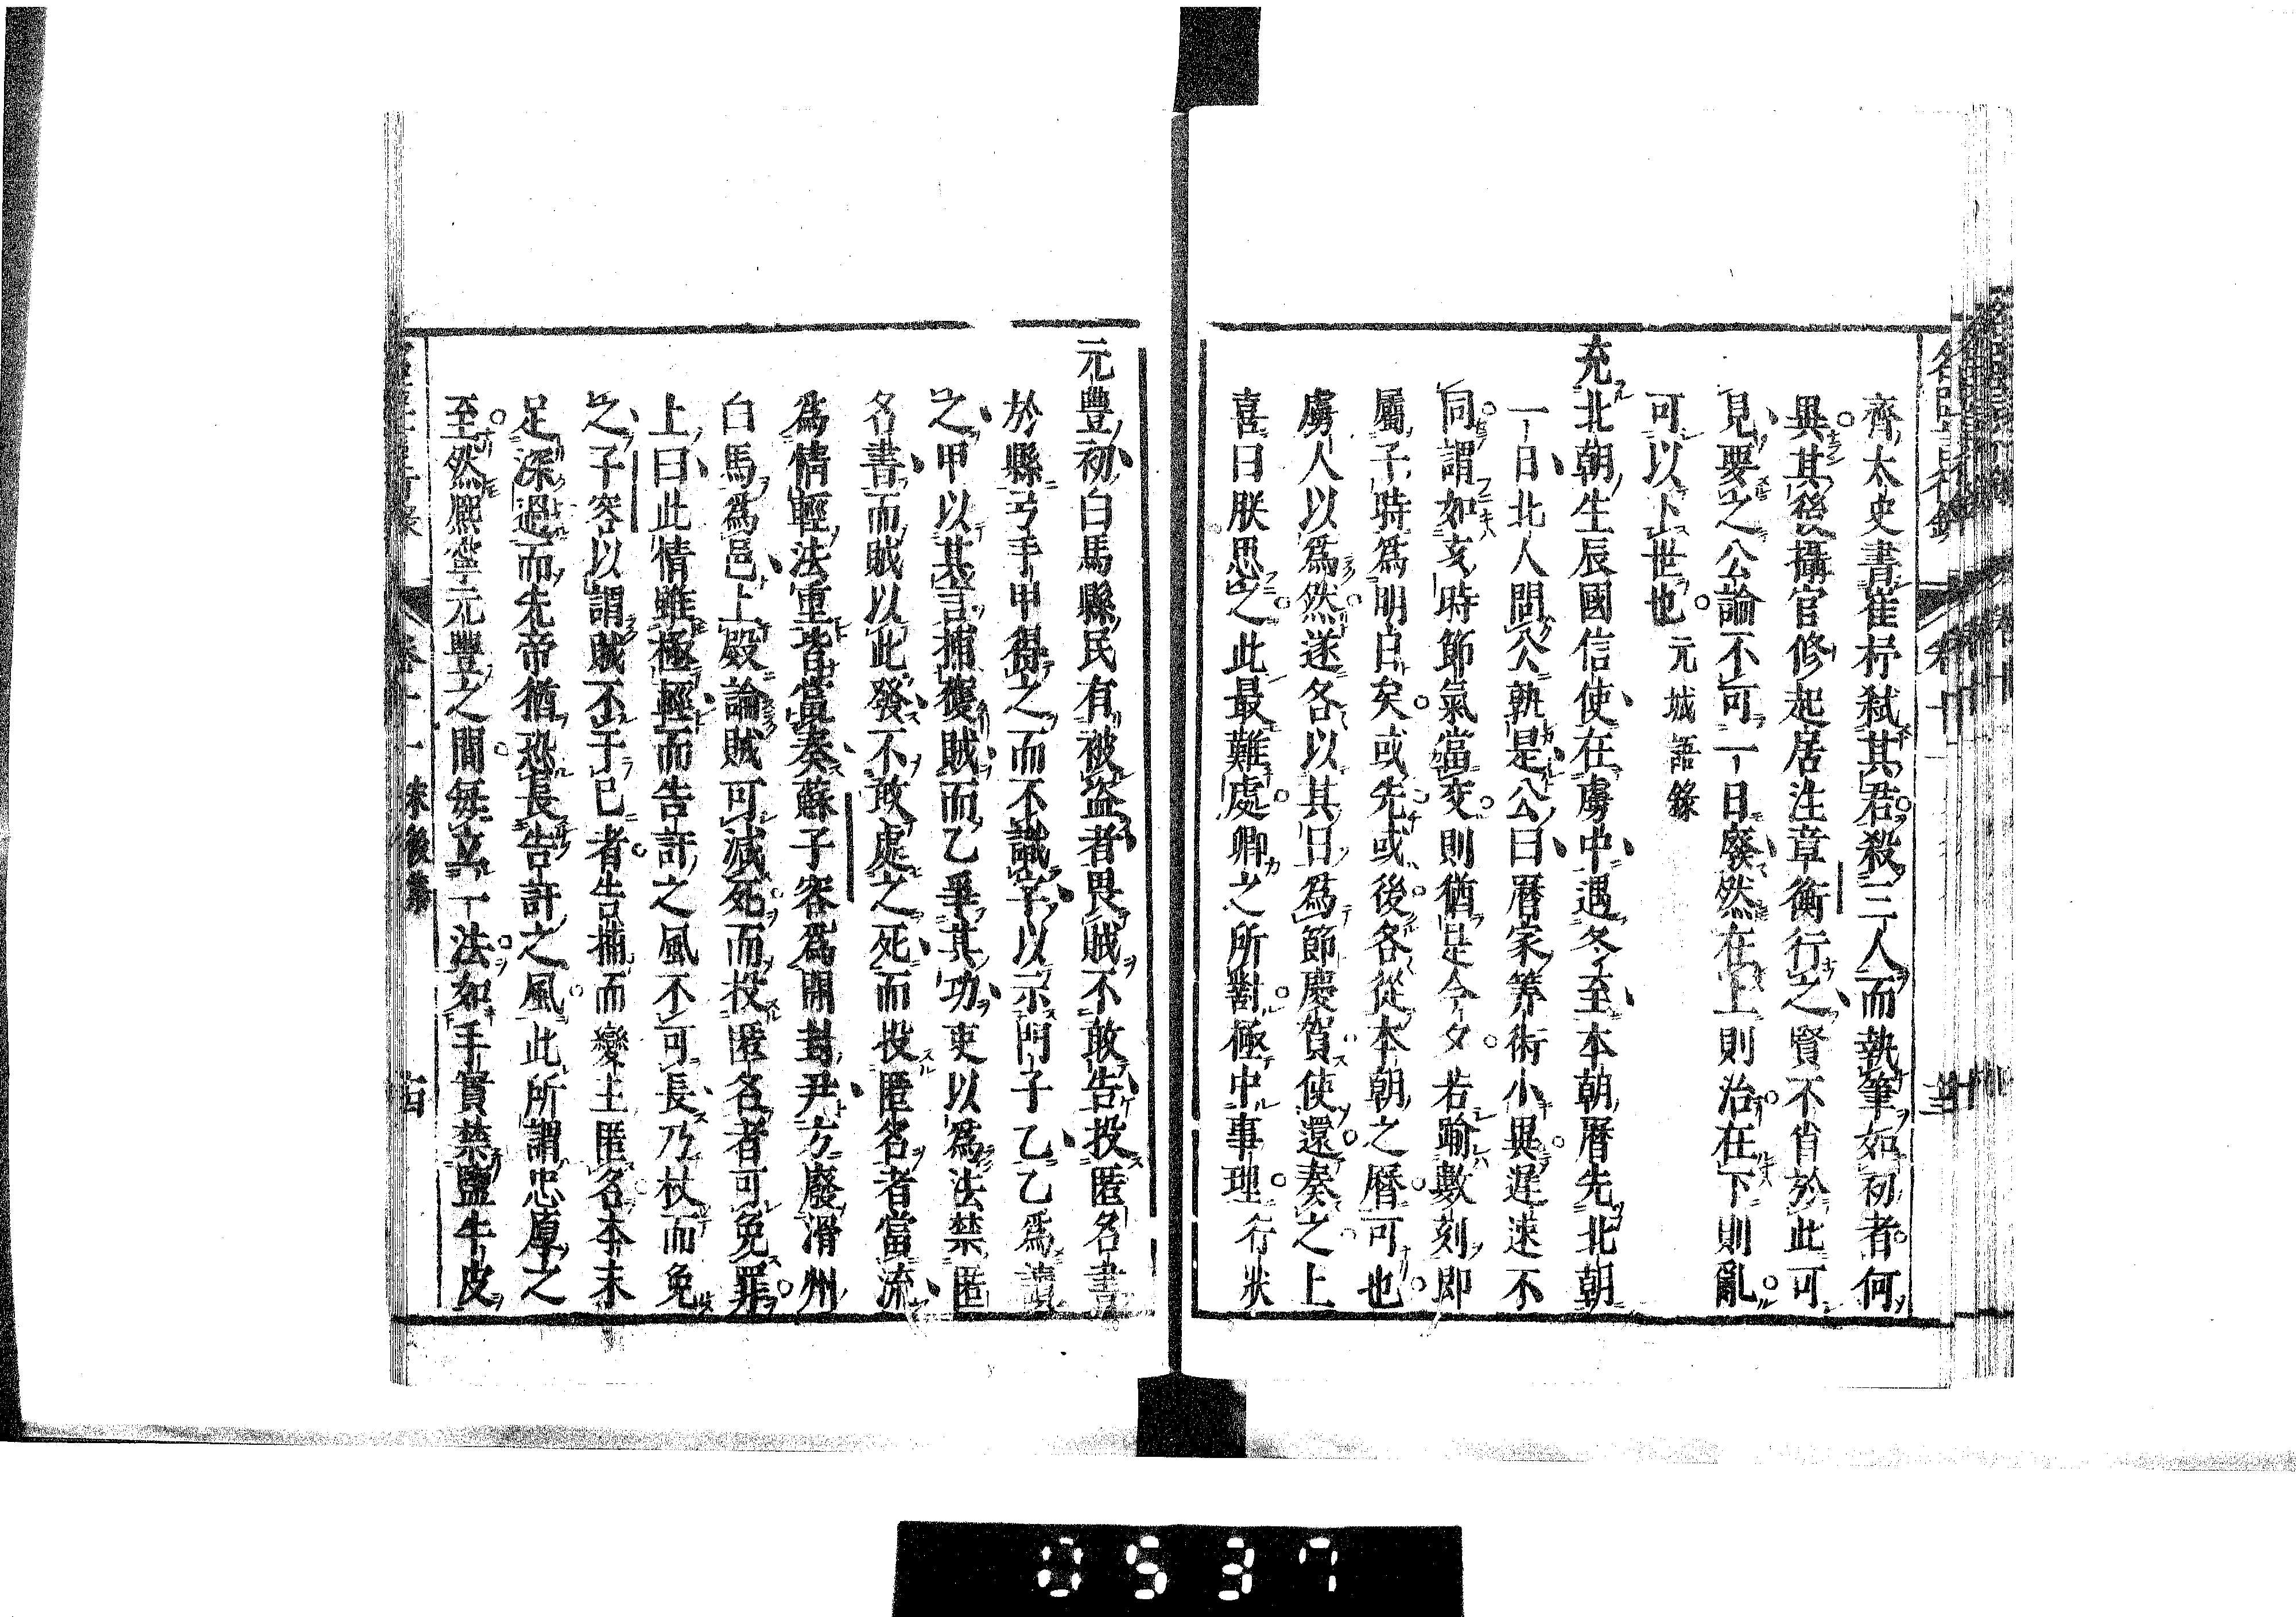 齊太史書崔杼弑其君殺三人而執筆如初者何
異其後攝官修起居注章衡行之賢不肖於此可
見要之公論不可一日廢然在上則治在下則亂
可以卜世也 元城語錄
充北朝生辰國信使在虜中遇冬至本朝曆先北朝
一日北人問公孰是公曰曆家筭術小異遲速不
同謂如亥時節氣當交則猶是今夕若踰數刻即
屬子時爲明日矣或先或後各從本朝之曆可也
虜人以爲然遂各以其日爲節慶賀使還奏之上
喜曰朕思之此最難處卿之所對極中事理 行狀
元豐初白馬縣民有被盜者畏賊不敢告投匿名書
於縣弓手甲得之而不識字以示門子乙乙爲讀
之甲以其言捕獲賊而乙爭其功吏以爲法禁匿
名書而賊以此發不敢處之死而投匿名者當流
爲情輕法重皆當奏蘇子容爲開封尹方廢滑州
白馬爲邑上殿論賊可減死而投匿名者可免罪
上曰此情雖極輕而告訐之風不可長乃杖而免
之子容以謂賊不干已者告捕而變主匿名本末
足深過而先帝猶恐長告訐之風此所謂忠厚之
至然熙寧元豐之間每立一法如手實禁鹽牛皮
卷十一 宋後集
0537